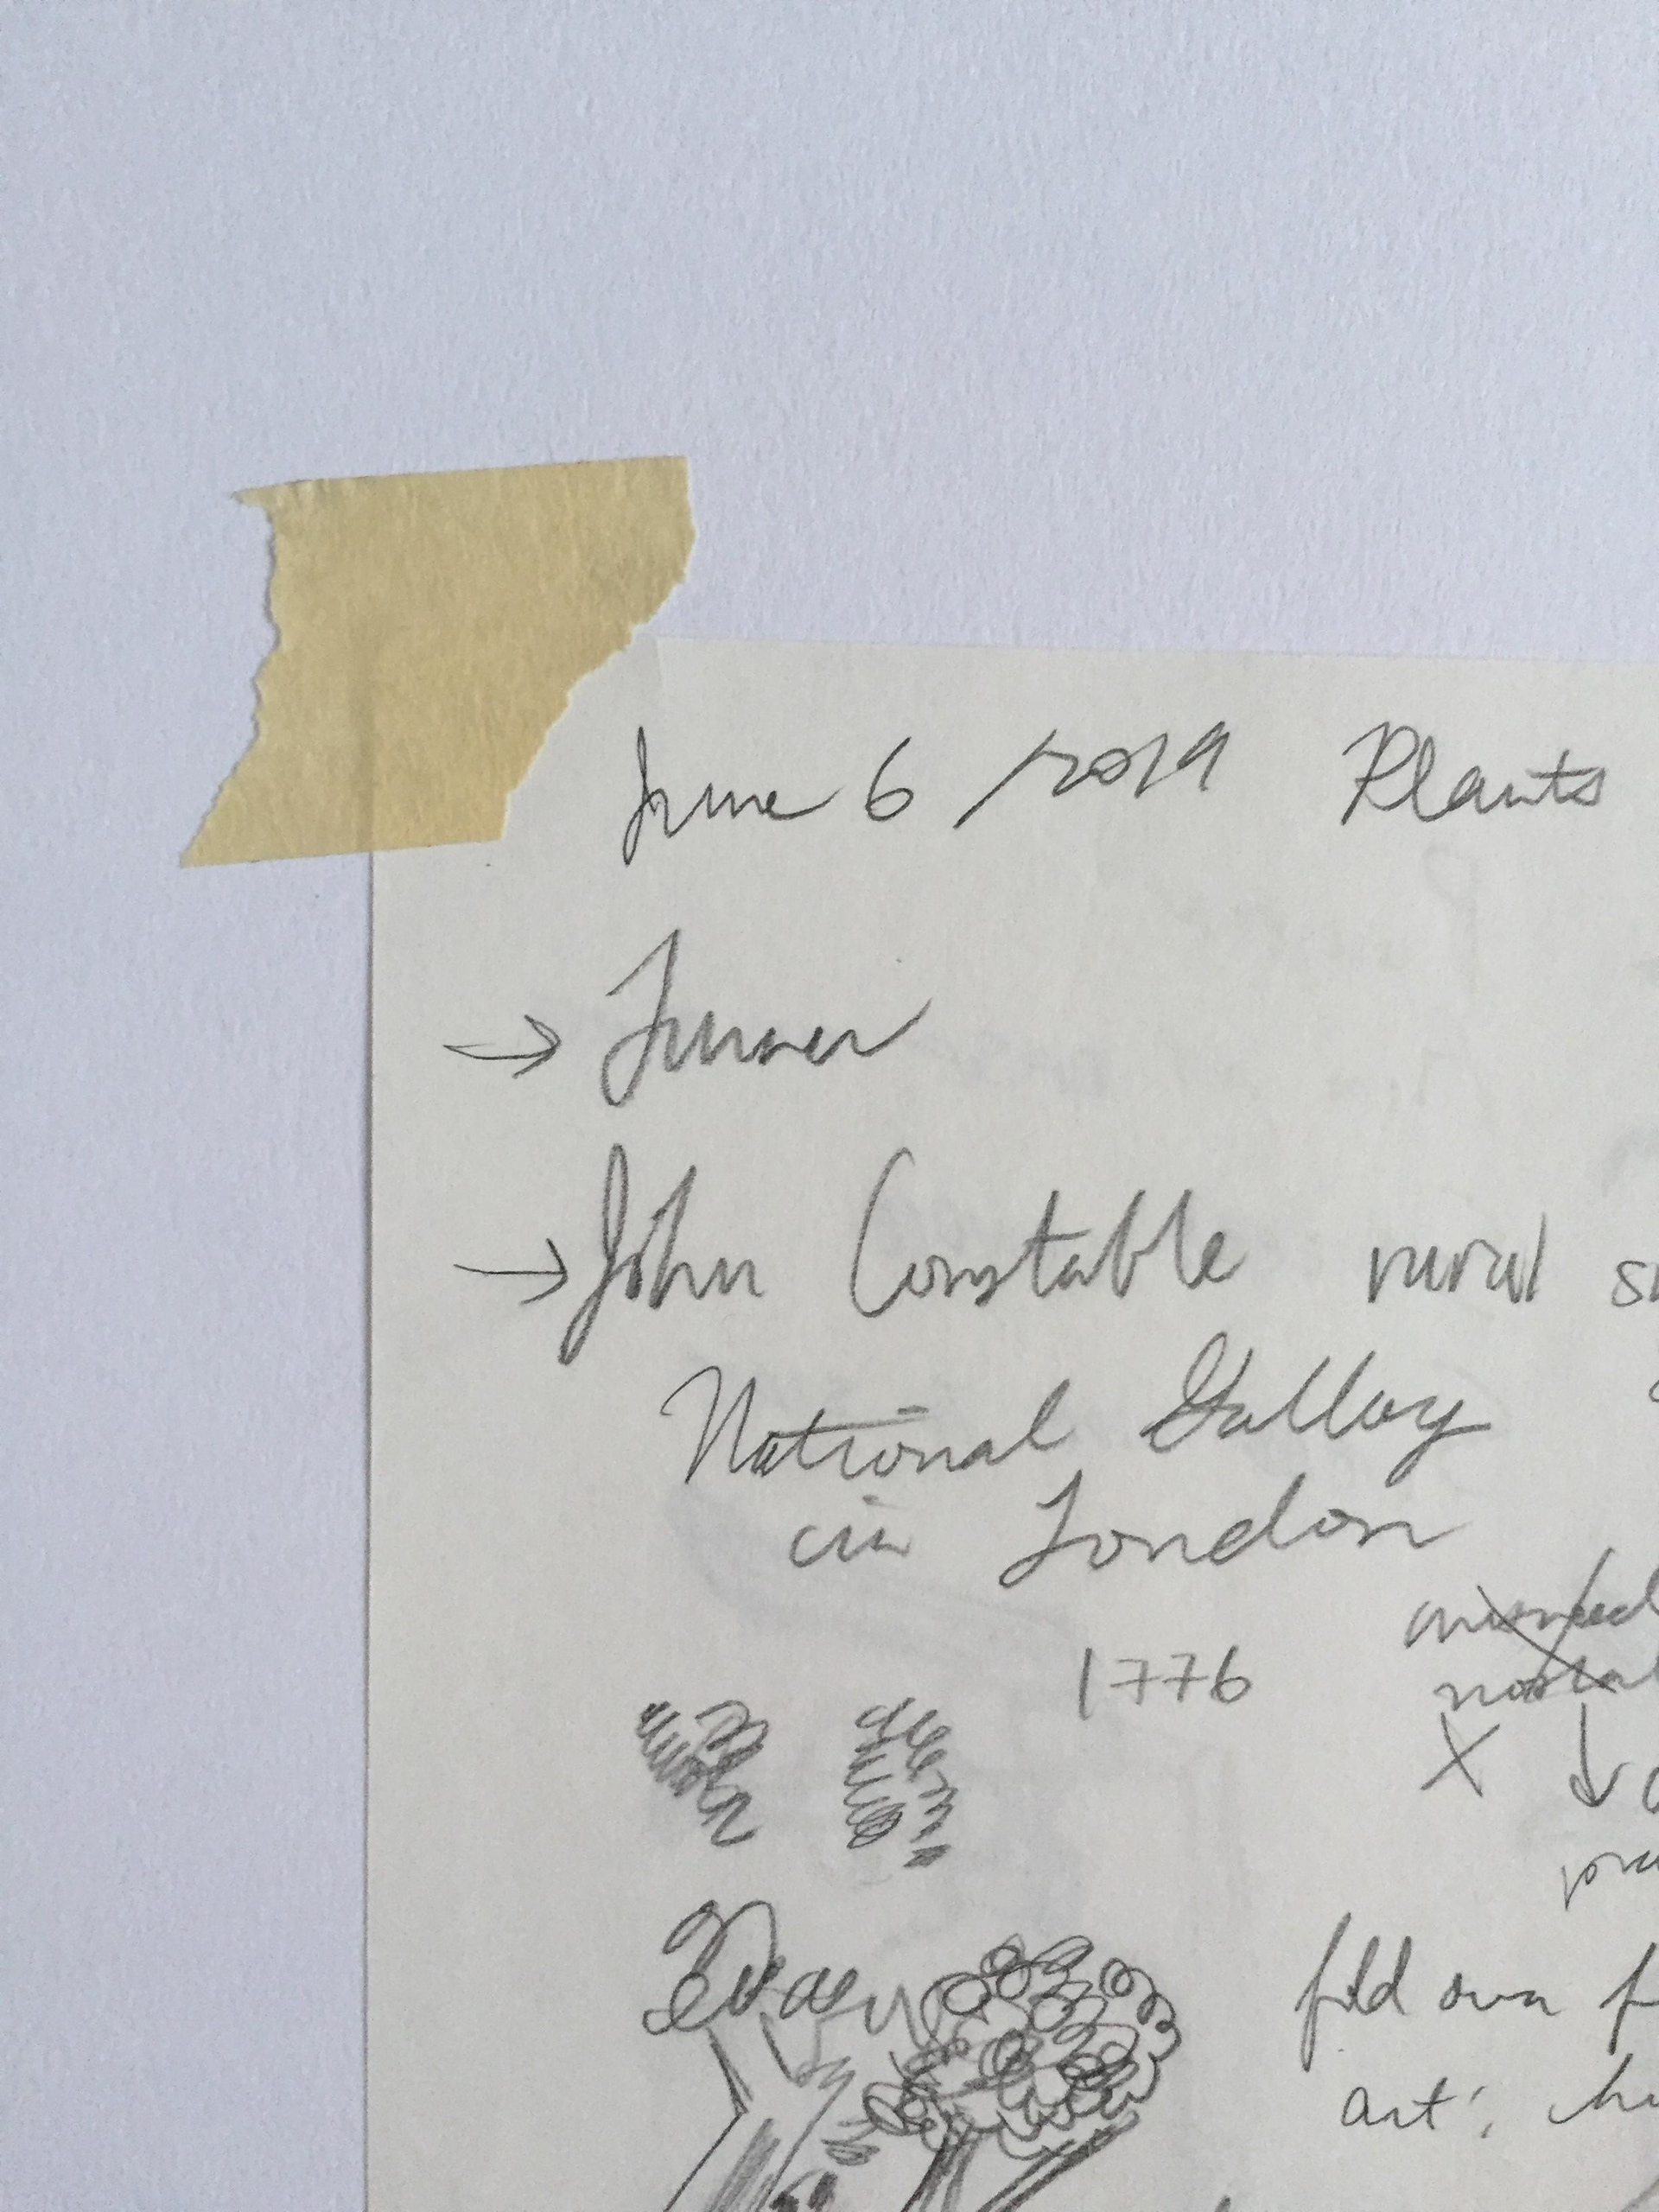 June 6 / 2019 Plants
→ Turner
→ John Constable rural
National Gallery
in London
1776
own
art: